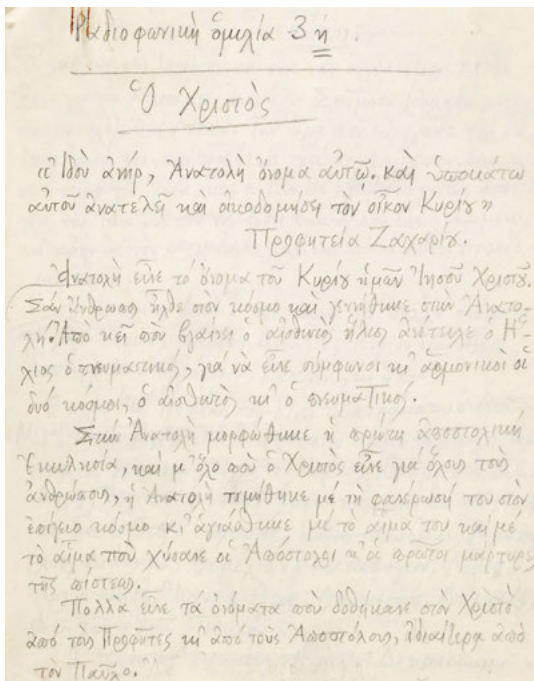 Ραδιοφωνικὴ ὁμιλία 3η.
Ὁ Χριστὸς
«Ἰδοὺ ἀνήρ, Ἀνατολὴ ὄνομα αὐτῷ. καὶ ὑποκάτω
αὐτοῦ ἀνατελεῖ καὶ οἰκοδομήσει τὸν οἶκον Κυρίου»
Προφητεία Ζαχαρίου.
Ἀνατολὴ εἶνε τὸ ὄνομα τοῦ Κυρίου ἡμῶν Ἰησοῦ Χριστοῦ.
Σὰν ἄνθρωπος ἦλθε στὸν κόσμο καὶ γεννήθηκε στὴν Ἀνατο-
λή. Ἀπὸ κεῖ ποὺ βγαίνει ὁ αἰσθητὸς ἥλιος ἀνέτειλε ὁ Ἥ-
λιος ὁ πνευματικός, γιὰ νὰ εἶνε σύμφωνοι κι' ἁρμονικοὶ οἱ
δυὸ κόσμοι, ὁ αἰσθητὸς κι' ὁ πνευματικός.
Στὴν Ἀνατολὴ μορφώθηκε ἡ πρώτη ἀποστολικὴ
Ἐκκλησία, καὶ μ' ὅλο ποὺ ὁ Χριστὸς εἶνε γιὰ ὅλους τοὺς
ἀνθρώπους, ἡ Ἀνατολὴ τιμήθηκε μὲ τὴ φανέρωσή του στὸν
ἐπίγειο κόσμο κι' ἁγιάσθηκε μὲ τὸ αἷμα του καὶ μὲ
τὸ αἷμα ποὺ χύσανε οἱ Ἀπόστολοι κ' οἱ πρῶτοι μάρτυρες
τῆς πίστεως.
Πολλὰ εἶνε τὰ ὀνόματα ποὺ δοθήκανε στὸν Χριστὸ
ἀπὸ τοὺς Προφῆτες κι' ἀπὸ τοὺς Ἀποστόλους, ἰδιαίτερα ἀπὸ
τὸν Παῦλο.